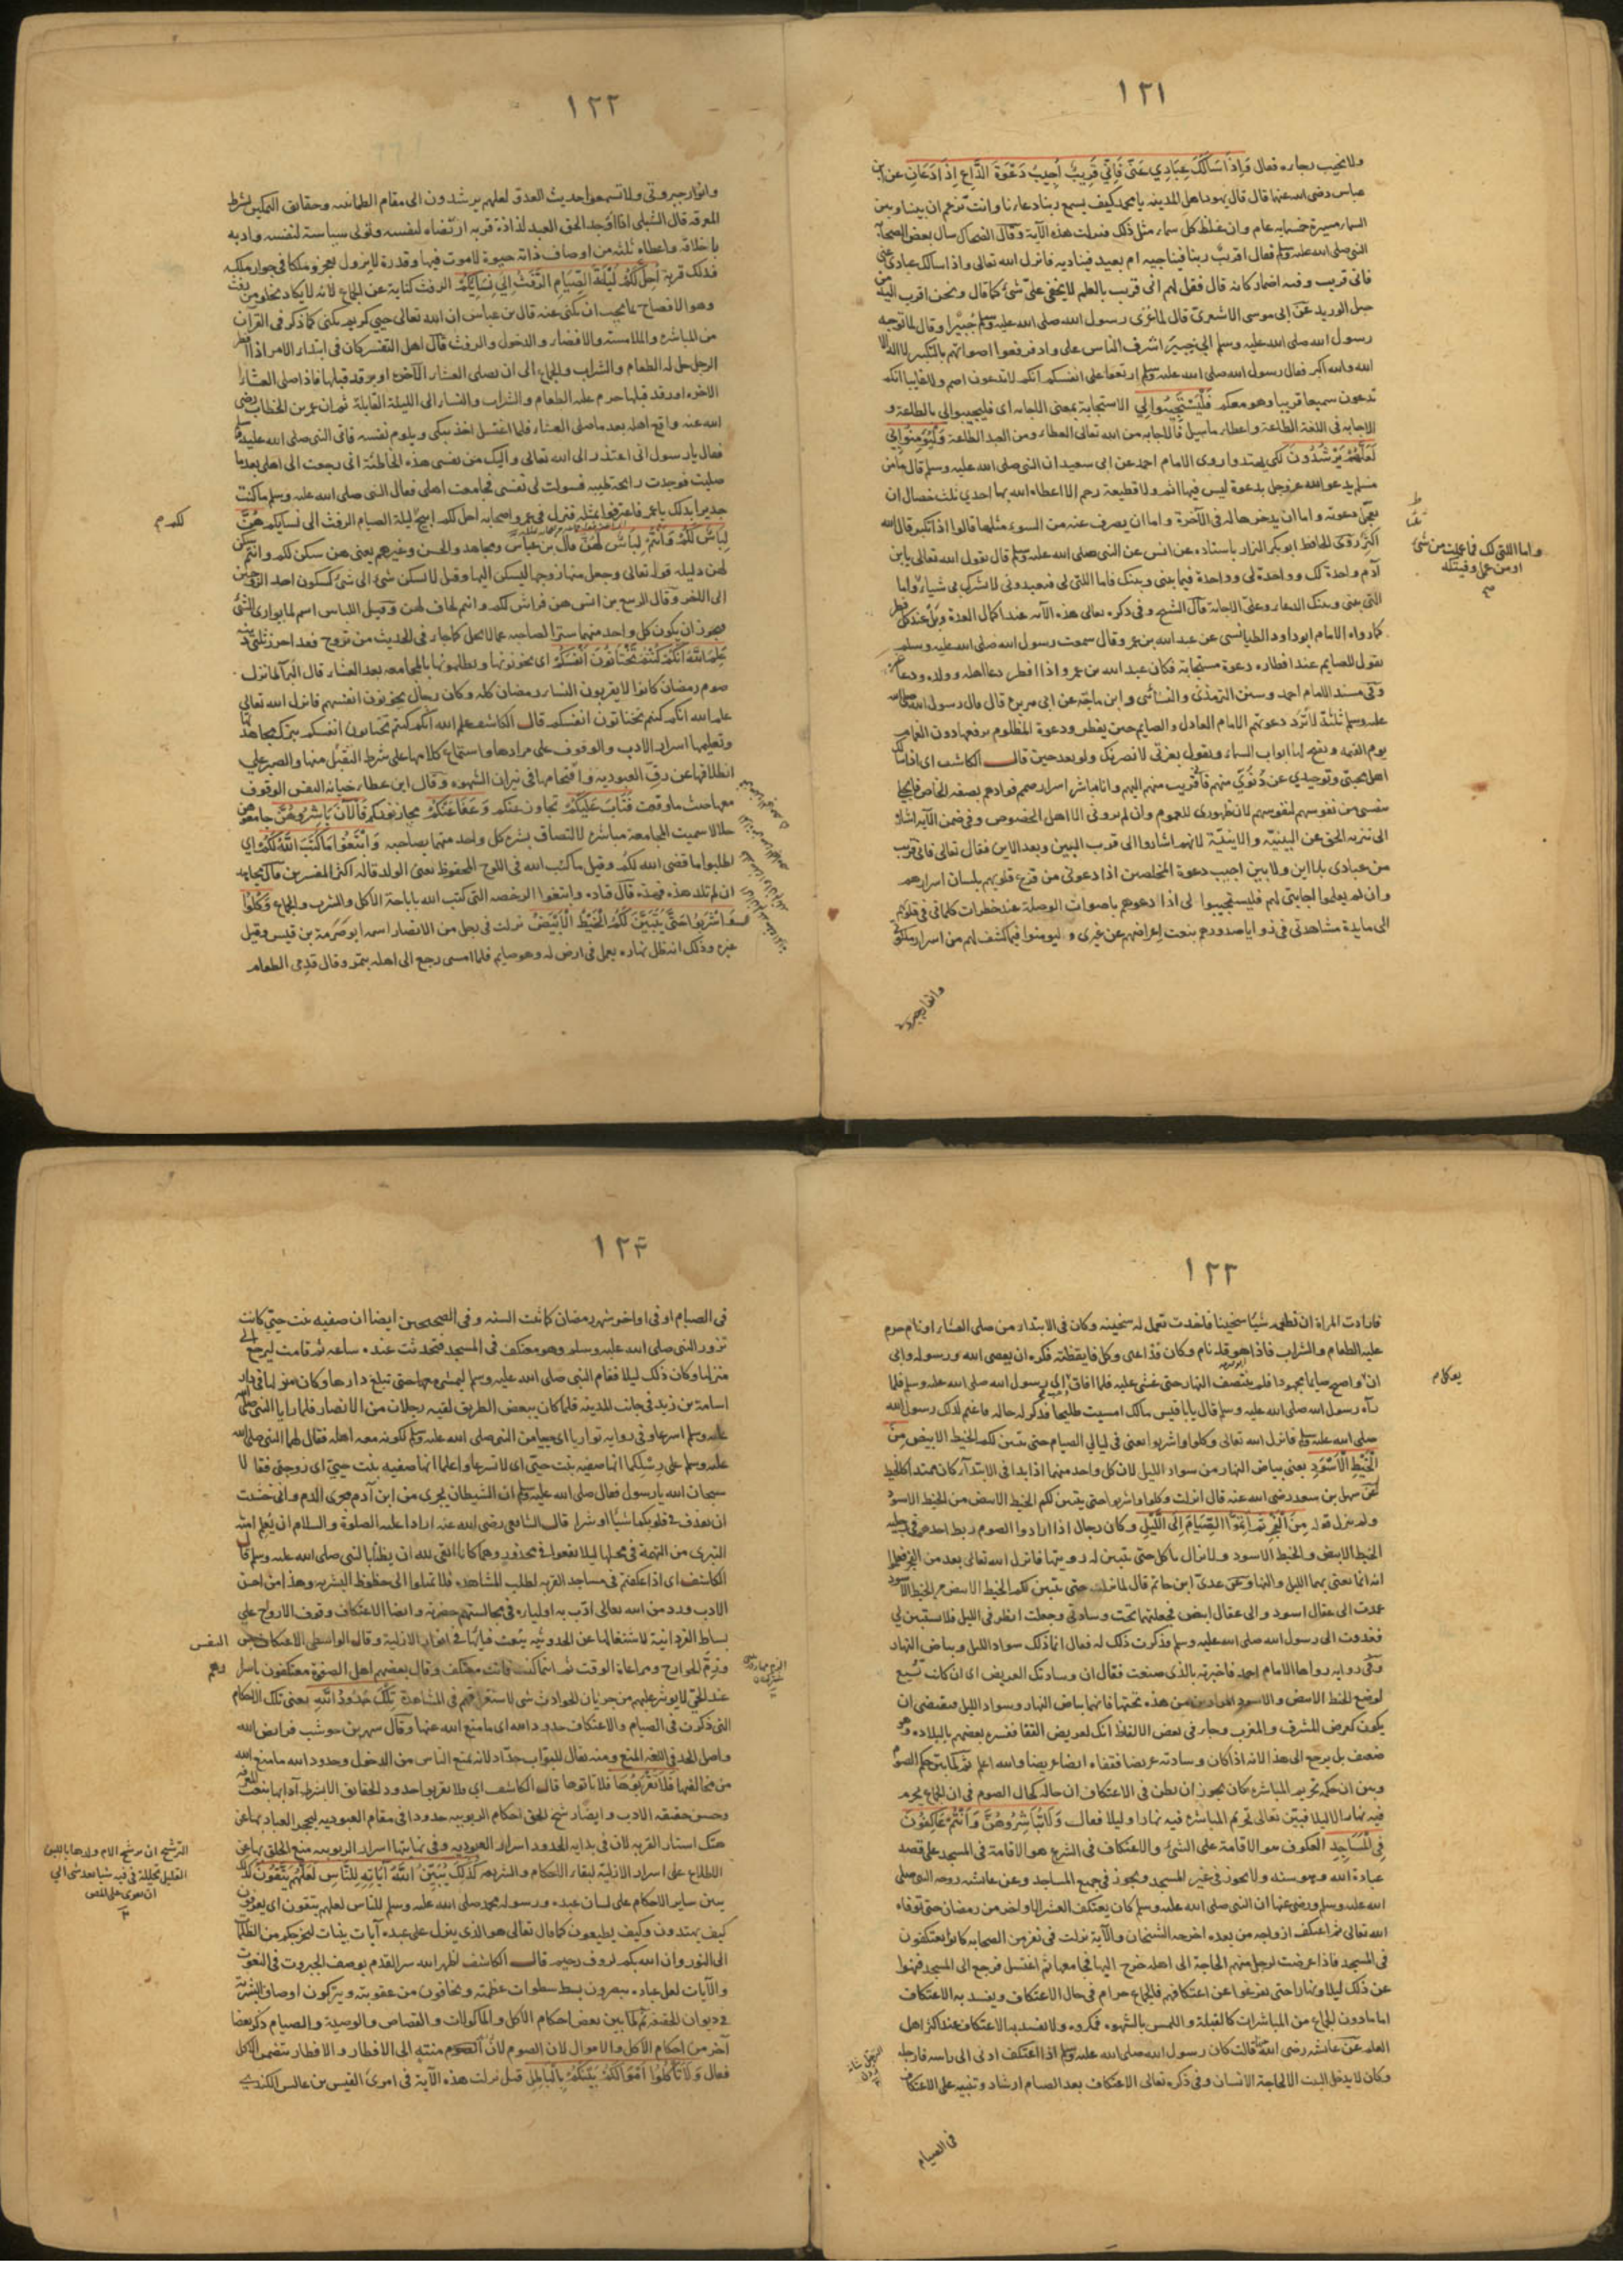 ١٢١
ولا نجيب رجاءه فقال وَإِذَا سَأَلَكَ عِبَادِي عَنِّي فَإِنِّي قَرِيبٌ أُجِيبُ دَعْوَةَ الدَّاعِ إِذَا دَعَانِ عن ابن
عباس رضى الله عنهما قال قال يهود اهل المدينه يا محمد كيف يسمع ربنا دعاءنا وانت تزعم ان بيننا وبين
السماء مسيرة خمسمايه عام وان غلظ كل سماء مثل ذلك فنزلت هذه الآية وقال الضحاك سال بعض الصحابة
النبى صلى الله عليه وسلم فقال اقريب ربنا فيناجيه ام بعيد فيناديه فانزل الله تعالى واذا سالك عبادى عنى
فانى قريب وفيه اضمار كانه قال فقل لهم انى قريب بالعلم لا يخفى على شئ كما قال ونحن اقرب اليه من
حبل الوريد عن ابى موسى الاشعرى قال لما غزى رسول الله صلى الله عليه وسلم خيبرا وقال لما توجه
رسول الله صلى الله عليه وسلم الى خيبر اشرف الناس على واد فرفعوا اصواتهم بالتكبير لا اله الا
الله والله اكبر فقال رسول الله صلى الله عليه وسلم اربعوا على انفسكم انكم لا تدعون اصم ولا غايبا انكم
تدعون سميعا قريبا وهو معكم فَلْيَسْتَجِيبُوا لِي الاستجابة بمعنى الاجابه اى فليجيبوا لي بالطاعة و
الاجابه فى اللغة الطاعة واعطاء ما سيل فالاجابه من الله تعالى العطاء ومن العبد الطاعة وَلْيُؤْمِنُوا بِي
لَعَلَّهُمْ يَرْشُدُونَ لكى يهتدوا روى الامام احمد عن ابى سعيد ان النبى صلى الله عليه وسلم قال ما من
مسلم يدعو الله عز وجل بدعوة ليس فيها اثم ولا قطيعة رحم الا اعطاه الله بها احدي ثلث خصال ان
يعجل دعوته واما ان يدخرها له فى الآخرة واما ان يصرف عنه من السوء مثلها قالوا اذا نكثر قال الله
اكثر روى الحافظ ابو بكر البزار باسناده عن انس عن النبى صلى الله عليه وسلم قال يقول الله تعالى يا بن
آدم واحدة لك وواحدة لى وواحدة فيما بينى وبينك فاما اللتى لى فتعبدونى لا تشرك بى شياء واما
التى بينى وبينك الدعاء وعلىّ الاجابة قال الشيخ وفى ذكره تعالى هذه الآيه عند اكمال العدة وبل عند كل فطر
كما رواه الامام ابو داود الطيالسى عن عبد الله بن عمر وقال سمعت رسول الله صلى الله عليه وسلم
يقول للصايم عند افطاره دعوة مستجابة فكان عبد الله بن عمرو اذا افطر دعا اهله وولده ودعا
وفى مسند الامام احمد وسنن الترمذى والنسائى وابن ماجه عن ابى هريرة قال قال رسول الله صلى الله
عليه وسلم ثلثة لا ترد دعوتهم الامام العادل والصايم حين يفطر ودعوة المظلوم يرفعها دون الغمام
يوم القيمه ويفتح لها ابواب السماء ويقول بعزتى لانصرنك ولو بعد حين قال الكاشف اى اذا سالك
من عبادى بلا اين ولا بين اجيب دعوة المخلصين اذا دعونى من قدح قلوبهم بلسان اسرارهم
وان لم يعلموا اجابتى لهم فليستجيبوا لى اذا ادعوهم باصوات الوصلة عند خطرات كلماتى فى قلوبهم
واما اللتى لك فما عملت من شئ
او من عمل وفيتكه
١٢٢
وانوار جبروتى ولا تسمعوا حديث العدو لعلهم يرشدون الى مقام الطمانينه وحقايق التمكين بشرط
المعرفه قال الشبلى اذا اوجد الحق العبد لذاذة قربه ارتضاه لنفسه وتولى سياسة لنفسه وادبه
باخلاقه واعطاه ثلثه من اوصاف ذاته حيوة لا موت فيها وقدرة لا يزول بعجز وملكا فى جوار ملكه
فذلك قربه أُحِلَّ لَكُمْ لَيْلَةَ الصِّيَامِ الرَّفَثُ إِلَى نِسَائِكُمْ الرفث كناية عن الجماع لانه لا يكاد يخلو من رفث
وهو الافصاح بما يجب ان يكنى عنه قال بن عباس ان الله تعالى حيى كريم يكنى كما ذكر فى القرآن
من المباشره والملامسة والافضاء والدخول والرفث قال اهل التفسير كان فى ابتداء الامر اذا افطر
الرجل حل له الطعام والشراب والجماع الى ان يصلى العشاء الآخرة او يرقد قبلها فاذا صلى العشاء
الاخره او رقد قبلها حرم عليه الطعام والشراب والنساء الى الليلة القابلة ثم ان عمر بن الخطاب رضى
الله عنه واقع اهله بعد ما صلى العشاء فلما اغتسل اخذ يبكى ويلوم نفسه فاتى النبى صلى الله عليه وسلم
فقال يا رسول الله انى اعتذر الى الله تعالى واليك من نفسى هذه الخاطئة انى رجعت الى اهلى بعد ما
صليت فوجدت رايحة طيبه فسولت لى نفسى فجامعت اهلى فقال النبى صلى الله عليه وسلم ما كنت
جديرا بذلك يا عمر فاعترفوا بمثله فنزل فى عمر واصحابه احل لكم ابيح ليلة الصيام الرفث الى نسايكم هُنَّ
لِبَاسٌ لَكُمْ وَأَنْتُمْ لِبَاسٌ لَهُنَّ قال بن عباس ومجاهد والحسن وغيرهم يعنى هن سكن لكم وانتم سكن
لهن دليله قوله تعالى وجعل منها زوجها ليسكن اليها وقيل لا يسكن شئ الى شئ كسكون احد الزوجين
الى الاخر وقال الربيع بن انس هن فراش لكم وانتم لحاف لهن وقيل اللباس اسم لما يوارى الشئ
فيجوز ان يكون كل واحد منهما سترا لصاحبه عما لا يحل كما جاء فى الحديث من تزوج فقد احرز ثلثى دينه
عَلِمَ اللَّهُ أَنَّكُمْ كُنْتُمْ تَخْتَانُونَ أَنْفُسَكُمْ اى تخونونها وتظلمونها بالمجامعه بعد العشاء قال البراء لما نزل
صوم رمضان كانوا لا يقربون النساء رمضان كله وكان رجال يخونون انفسهم فانزل الله تعالى
علم الله انكم كنتم تختانون انفسكم قال الكاشف علم الله انكم كنتم تختانون انفسكم بترك مجاهدتها
وتعليمها اسرار الادب والوقوف على مرادها واستماع كلامها على شرط التقبل منها والصبر علي
انطلاقها عن رق العبوديه واقتحامها فى نيران الشهوه وقال ابن عطاء خيانة النفس الوقوف
معها حيث ما وقفت فَتَابَ عَلَيْكُمْ تجاوز عنكم وَعَفَا عَنْكُمْ محا ذنوبكم فَالْآنَ بَاشِرُوهُنَّ جامعوهن
حلالا سميت المجامعة مباشرة لالتصاق بشرة كل واحد منهما بصاحبه وَابْتَغُوا مَا كَتَبَ اللَّهُ لَكُمْ اى
اطلبوا ما قضى الله لكم وقيل ما كتب الله فى اللوح المحفوظ يعنى الولد قاله اكثر المفسرين قال مجاهد
ان لم تلد هذه فهذه قال قتاده وابتغوا الرخصه التى كتب الله باباحة الاكل والشرب والجماع وَكُلُوا
وَاشْرَبُوا حَتَّى يَتَبَيَّنَ لَكُمُ الْخَيْطُ الْأَبْيَضُ نزلت فى رجل من الانصار اسمه ابو صرمة بن قيس وقيل
غيره وذلك انه ظل نهاره يعمل فى ارض له وهو صايم فلما امسى رجع الى اهله بتمر وقال قدمى الطعام
١٢٣
فارادت المراة ان تطعمه شيا سخينا فاخذت تعمل له سخينه وكان فى الابتداء من صلى العشاء او نام حرم
عليه الطعام والشراب فاذا هو قد نام وكان قد اعيى وكل فايقظته فكره ان يعصى الله ورسوله وابى
ان ياكل واصبح صايما مجهودا فلم ينتصف النهار حتى غشى عليه فلما افاق اتى رسول الله صلى الله عليه وسلم فلما
رآه رسول الله صلى الله عليه وسلم قال يا با قيس مالك امسيت طليحا فذكر له حاله فاغتم لذلك رسول الله
صلى الله عليه وسلم فانزل الله تعالى وكلوا واشربوا يعنى فى ليالي الصيام حتى يتبين لكم الخيط الابيض مِنَ
الْخَيْطِ الْأَسْوَدِ يعنى بياض النهار من سواد الليل لان كل واحد منهما اذا بدا فى الابتداء كان ممتدا كالخيط
عن سهل بن سعد رضى الله عنه قال انزلت وكلوا واشربوا حتى يتبين لكم الخيط الابيض من الخيط الاسود
ولم ينزل قوله مِنَ الْفَجْرِ ثُمَّ أَتِمُّوا الصِّيَامَ إِلَى اللَّيْلِ وكان رجال اذا ارادوا الصوم ربط احدهم فى رجليه
الخيط الابيض والخيط الاسود ولا يزال ياكل حتى يتبين له رويتهما فانزل الله تعالى بعد من الفجر فعلموا
انه انما يعنى بهما الليل والنهار وعن عدى ابن حاتم قال لما نزلت حتى يتبين لكم الخيط الابيض من الخيط الاسود
عمدت الى عقال اسود والى عقال ابيض فجعلتهما تحت وسادتى وجعلت انظر فى الليل فلا يستبين لي
فغدوت الى رسول الله صلى الله عليه وسلم فذكرت ذلك له فقال انما ذلك سواد الليل وبياض النهار
وفى روايه رواها الامام احمد فاخبرته بالذى صنعت فقال ان وسادتك العريض اى ان كانت تسع
يكون كعرض المشرق والمغرب وجاء فى بعض الالفاظ انك لعريض القفا ففسره بعضهم بالبلاده وهو
ضعيف بل يرجع الى هذا لانه اذا كان وسادته عريضا فقفاه ايضا عريض والله اعلم ثم لما بين حكم الصوم
وبين ان حكمه تحريم المباشره كان يجوز ان يظن فى الاعتكاف ان حاله كحال الصوم فى ان الجماع يحرم
فيه نهارا لا ليلا فبين تعالى تحريم المباشره فيه نهارا وليلا فقال وَلَا تُبَاشِرُوهُنَّ وَأَنْتُمْ عَاكِفُونَ
فِي الْمَسَاجِدِ العكوف هو الاقامة على الشئ والاعتكاف فى الشرع هو الاقامة فى المسجد على قصد
عبادة الله وهو سنه ولا يجوز فى غير المسجد ويجوز فى جميع المساجد وعن عائشه زوجه النبى صلى
الله عليه وسلم ورضى عنها ان النبى صلى الله عليه وسلم كان يعتكف العشر الاواخر من رمضان حتى توفاه
الله تعالى ثم اعتكف ازواجه من بعده اخرجه الشيخان والآية نزلت فى نفر من الصحابه كانوا يعتكفون
فى المسجد فاذا عرضت لرجل منهم الحاجة الى اهله خرج اليها فجامعها ثم اغتسل فرجع الى المسجد فنهوا
عن ذلك ليلا ونهارا حتى يفرغوا عن اعتكافهم فالجماع حرام فى حال الاعتكاف ويفسد به الاعتكاف
اما ما دون الجماع من المباشرات كالقبلة واللمس بالشهوه فمكروه ولا يفسد به الاعتكاف عند اكثر اهل
العلم عن عائشه رضى الله عنها قالت كان رسول الله صلى الله عليه وسلم اذا اعتكف ادنى الى راسه فارجله
وكان لا يدخل البيت الا لحاجة الانسان وفى ذكره تعالى الاعتكاف بعد الصيام ارشاد وتنبيه على الاعتكاف
فى الصيام
١٢٤
فى الصيام او فى اواخر شهر رمضان كما ثبت السنه وفى الصحيحين ايضا ان صفيه بنت حيي كانت
تزور النبى صلى الله عليه وسلم وهو معتكف فى المسجد فتحدثت عنده ساعه ثم قامت ليرجع الى
منزلها وكان ذلك ليلا فقام النبى صلى الله عليه وسلم ليمشى معها حتى تبلغ دارها وكان منزلها فى دار
اسامة بن زيد فى جانب المدينه فلما كان ببعض الطريق لقيه رجلان من الانصار فلما رايا النبى صلى الله
عليه وسلم اسرعا وفى روايه تواريا اى حياء من النبى صلى الله عليه وسلم لكونه معه اهله فقال لهما النبى صلى الله
عليه وسلم على رسلكما انها صفيه بنت حيى اى لا تسرعا واعلما انها صفيه بنت حيى اى زوجتى فقالا
سبحان الله يا رسول الله فقال صلى الله عليه وسلم ان الشيطان يجرى من ابن آدم مجرى الدم وانى خشيت
ان يقذف فى قلوبكما شيا او شرا قال الشافعى رضى الله عنه اراد عليه الصلوة والسلام ان يعلم امته
التبرى من التهمة فى محلها ليلا يقعوا فى محذور وهما كانا اتقى لله ان يظنا بالنبى صلى الله عليه وسلم قال
الكاشف اى اذا عكفتم فى مساجد القربه لطلب المشاهده فلا تميلوا الى حظوظ البشريه وهذا من احسن
عند الحق لا يوثر عليهم من جريان الحوادث شئ لاستغراقهم فى المشاهدة تِلْكَ حُدُودُ اللَّهِ يعنى تلك الاحكام
التى ذكرت فى الصيام والاعتكاف حدود الله اى ما منع الله عنها وقال شهر بن حوشب فرايض الله
واصل الحد فى اللغه المنع ومنه يقال للبواب حدّاد لانه يمنع الناس من الدخول وحدود الله ما منع الله
من مخالفتها فَلَا تَقْرَبُوهَا فلا تاتوها قال الكاشف اى ولا تقربوا حدود الحقايق الا بشرط آدابها بنعت
هتك استار القربه لان فى بدايه الحدود اسرار العبوديه وفى نهايتها اسرار الربوبيه منع الخلق بها عن
الاطلاع على اسرار الازلية لبقاء الاحكام والشريعه كَذَلِكَ يُبَيِّنُ اللَّهُ آيَاتِهِ لِلنَّاسِ لَعَلَّهُمْ يَتَّقُونَ
يبين ساير الاحكام على لسان عبده ورسوله محمد صلى الله عليه وسلم للناس لعلهم يتقون اى يعرفون
كيف يهتدون وكيف يطيعون كما قال تعالى هو الذى ينزل على عبده آيات بينات ليخرجكم من الظلمات
الى النور وان الله بكم لروف رحيم قال الكاشف اظهر الله سر القدم بوصف الجبروت فى النعوت
والآيات لعل عباده يبصرون بسط سطوات عظمته ويخافون من عقوبته ويتركون اوصاف البشريه
فى ديوان الحقيقه ثم لما بين بعض احكام الاكل والماكولات والقصاص والوصية والصيام ذكر بعضا
آخر من احكام الاكل والاموال لان الصوم لان الصوم منته الى الافطار والافطار يتضمن الاكل
فقال وَلَا تَأْكُلُوا أَمْوَالَكُمْ بَيْنَكُمْ بِالْبَاطِلِ قيل نزلت هذه الآية فى امرئ القيس بن عابس الكندى